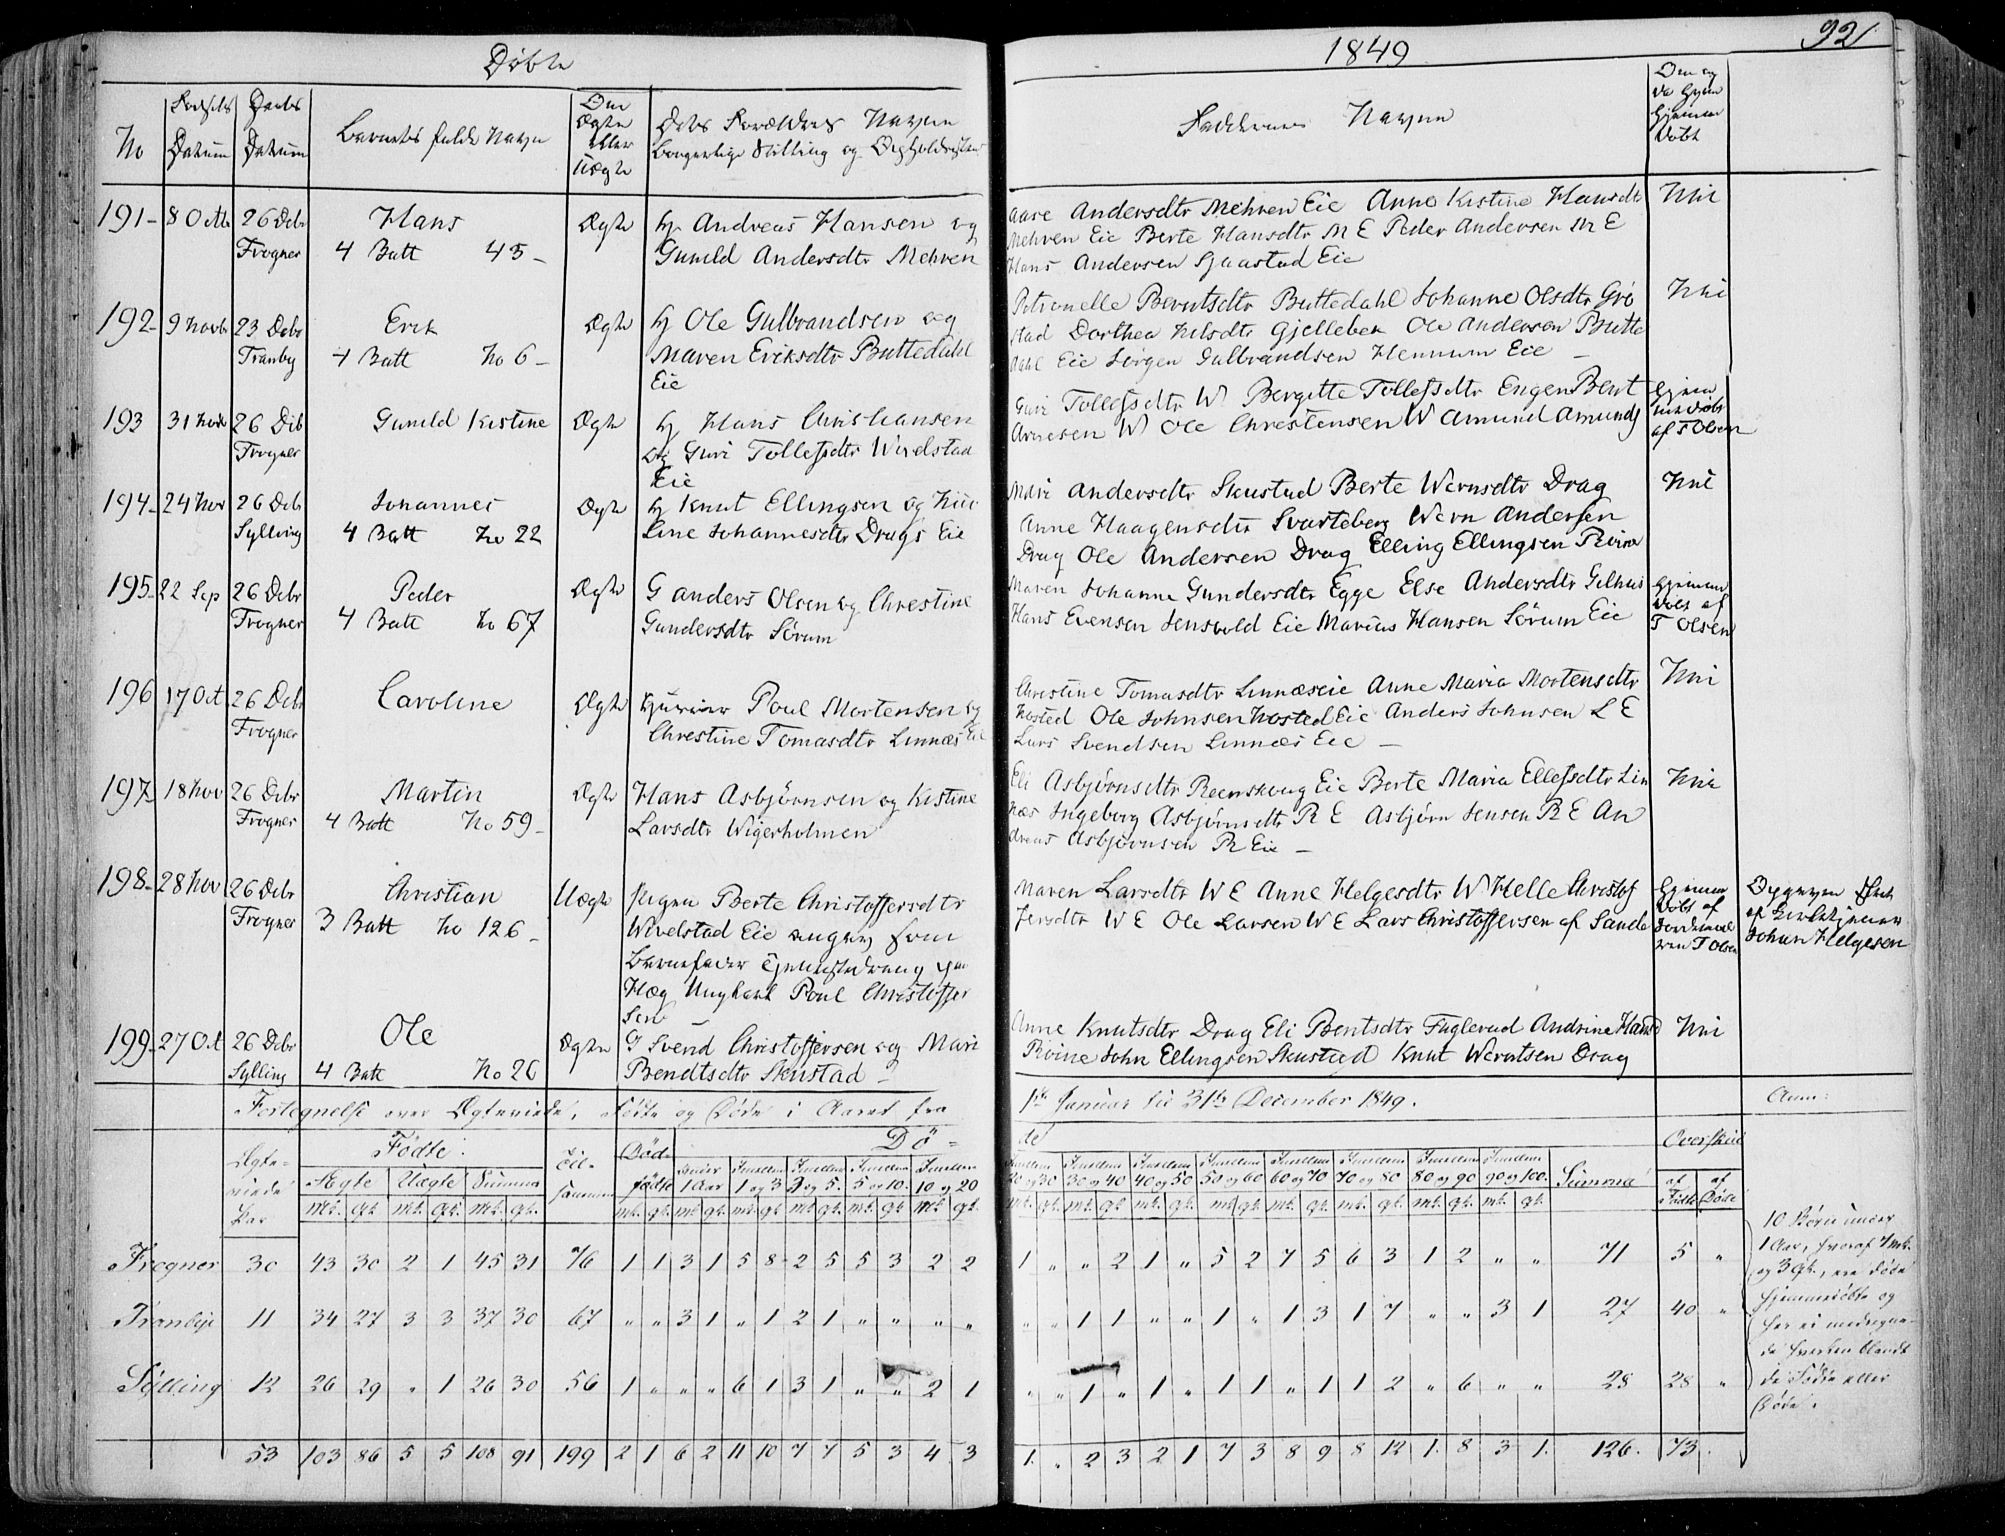 Døbte
1849
92
No
Fødsels Datum
Daabs Datum
Barnets fulde Navn
Om Ægte eller Uægte
Dets Forældres Navne
Borgerlige Stilling og
Faddernes Navne
Om og
Hjemme
Døbt
191- 8 Octb 26 Debr Hans Ægte Andreas Hansen og
Frogner 4 Batt 45 - Guneld Andersdtr Mehren
Aase Andersdtr Mehren Eie Anne Kistine Hansdt Nei
Mehren Eie Berte Hansdtr M E Peder Andersen M E
Hans Andersen Sjaastad Eie
192- 9 Novb 23 Debr Erik Ægte Ole Gulbrandsen og
Tranby 4 Batt No 6 - Maren Eriksdtr Buttedahl
Eie
Petronelle Berntsdtr Buttedahl Johanne Olsdtr Grø Nei
stad Dorthea Nilsdtr Gjellebek Ole Andersen Butte
dahl Eie Jørgen Gulbrandsen Hennum Eie -
193 31 26 Dib Guneld Kistine Ægte Hans Christiansen
Frogner og Guri Tollefsdtr Wivelstad
Eie
Guri Tollefsdtr W Bergitte Tollefsdtr Engen Bent
Arnesen W Ole Christensen W Amund Amunds
Hjem
af T Olsen
194- 24 Nov 26 Deb Johannes Ægte Knut Ellingsen og
Sylling 4 Batt No 22 Line Johannesdtr Drags Eie
Mari Andersdtr Skustad Berte Wernsdtr Drag Nei
Anne Haagensdtr Svarteberg Wern Andersen
Drag Ole Andersen Drag Elling Ellingsen
195- 22 Sep 26 Debr Peder Ægte G Anders Olsen og Christine
Frogner 4 Batt No 67 Gundersdtr Sørum
Maren Johanne Gundersdtr Egge Else Andersdtr Gilhus
Hans Evensen Jensvold Eie Marius Hansen Sørum Eie
Hjemme
Døbt af
T Olsen
196 17 Oct 26 Debr Caroline Ægte Poul Mortensen og
Frogner Christine Tomasdtr Linnæs Eie
Christine Tomasdtr Linnæs eie Anne Maria Mortensdtr Nei
Nosted Ole Johnsen Nosted Eie Anders Johnsen L E
Lars Svendsen Linnæs Eie -
197 18 Nov 26 Debr Martin Ægte Hans Asbjørnsen og Kistine
Frogner 4 Batt No 59 - Larsdtr Wigerholmen
Eli Asbjørnsdtr Reenskoug Eie Berte Maria Ellefsdtr Lin Nei
næs Ingeborg Asbjørnsdtr R E Asbjørn Jensen R E An
dreas Asbjørnsen R Eie -
198- 28 Nov 26 Debr Christian Uægte Pigen Berte Christoffersdtr
Frogner 3 Batt No 126 - Wivelstad Eie angiver som
Barnefader
Hæg Ungkarl Poul Christoffer
sen
Maren Larsdtr W E Anne Helgesdtr W Helle Christof
fersdtr W E Ole Larsen W E Lars Christoffersen af Sande
Hjemme
Døbt af
T Olsen
Johan Helgesen
199- 27 Oct 26 Debr Ole Ægte G Svend Christoffersen og Mari
Sylling 4 Batt No 26 Bendtsdtr Skustad -
Anne Knutsdtr Drag Eli Bentsdtr Fuglerud Andrine Hansd Nei
John Ellingsen Skustad Knut Werntsen Drag
Fortegnelse over Ægteviede, Fødte og Døde i Aaret fra 1ste Januar til 31te December 1849. Anm:
Ægte-viede Par Fødte. Tilsammen Dødfødte Døde Overskud
Ægte Uægte Summa under 1 Aar 1 og 3 3 og 5. 5 og 10. 10 og 20 20 og 30 30 og 40 40 og 50 50 og 60 60 og 70 70 og 80 80 og 90 90 og 100. Summa af Fødte af Døde
Mk. Qk. Mk. Qk. Mk. Qk.
Frogner 30 43 30 2 1 45 31 76 1 1 3 1 5 8 2 5 5 3 2 2 1 " " 2 1 " 5 2 7 5 6 3 1 2 " " 71 5 "
Tranbye 11 34 27 3 3 37 30 67 " " 3 1 " 1 2 1 " " " " " " 1 1 " " 1 " 1 3 1 7 " " 3 1 27 40 "
Sylling 12 26 29 " 1 26 30 56 1 " " " 6 1 3 1 " " 2 1 " " 1 " 1 " 1 1 " 1 1 2 " 6 " " 28 28 "
53 103 86 5 5 108 91 199 2 1 6 2 11 10 7 7 5 3 4 3 1. " 2 3 2 1 7 3 8 9 8 12 1. 8 3 1. 126. 73.
10 Børn under
1 Aar, hvoraf 7 mk.
og 3 Qk., ere døde
hjemmedøbte og
her ei medregne-
de hverken blandt
de Fødte eller
Døde.